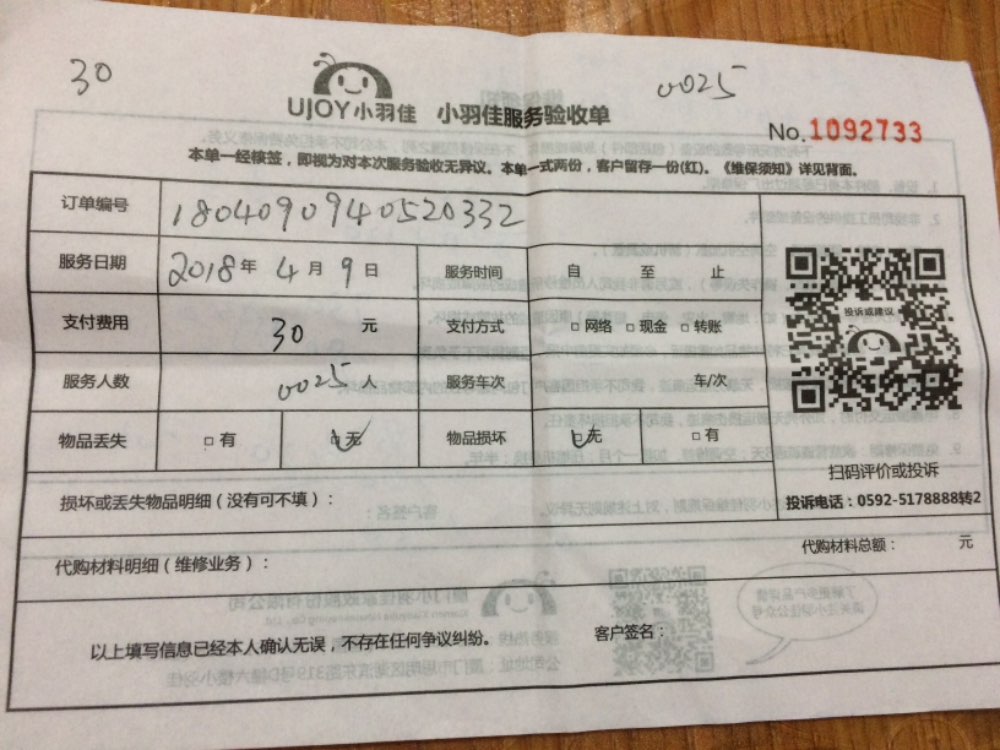 30
0025
UJOY小羽佳 小羽佳服务验收单
No.1092733
本单一经核签，即视为对本次服务验收无异议。本单一式两份，客户留存一份(红)。《维保须知》详见背面。
订单编号 1804090940520332
服务日期 2018年4月9日 服务时间 自 至 止
支付费用 30 元 支付方式 □网络 □现金 □转账
服务人数 0025人 服务车次 车/次
物品丢失 □有 □无 物品损坏 □无 □有
投诉或建议
扫码评价或投诉
投诉电话：0592-5178888转2
损坏或丢失物品明细（没有可不填）：
代购材料明细（维修业务）： 代购材料总额： 元
以上填写信息已经本人确认无误，不存在任何争议纠纷。 客户签名：